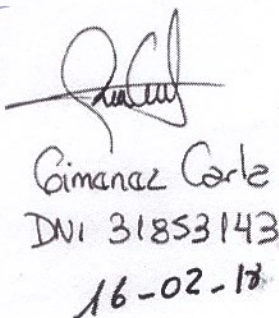 Gimanaz Carla
DNI 31853143
16-02-18